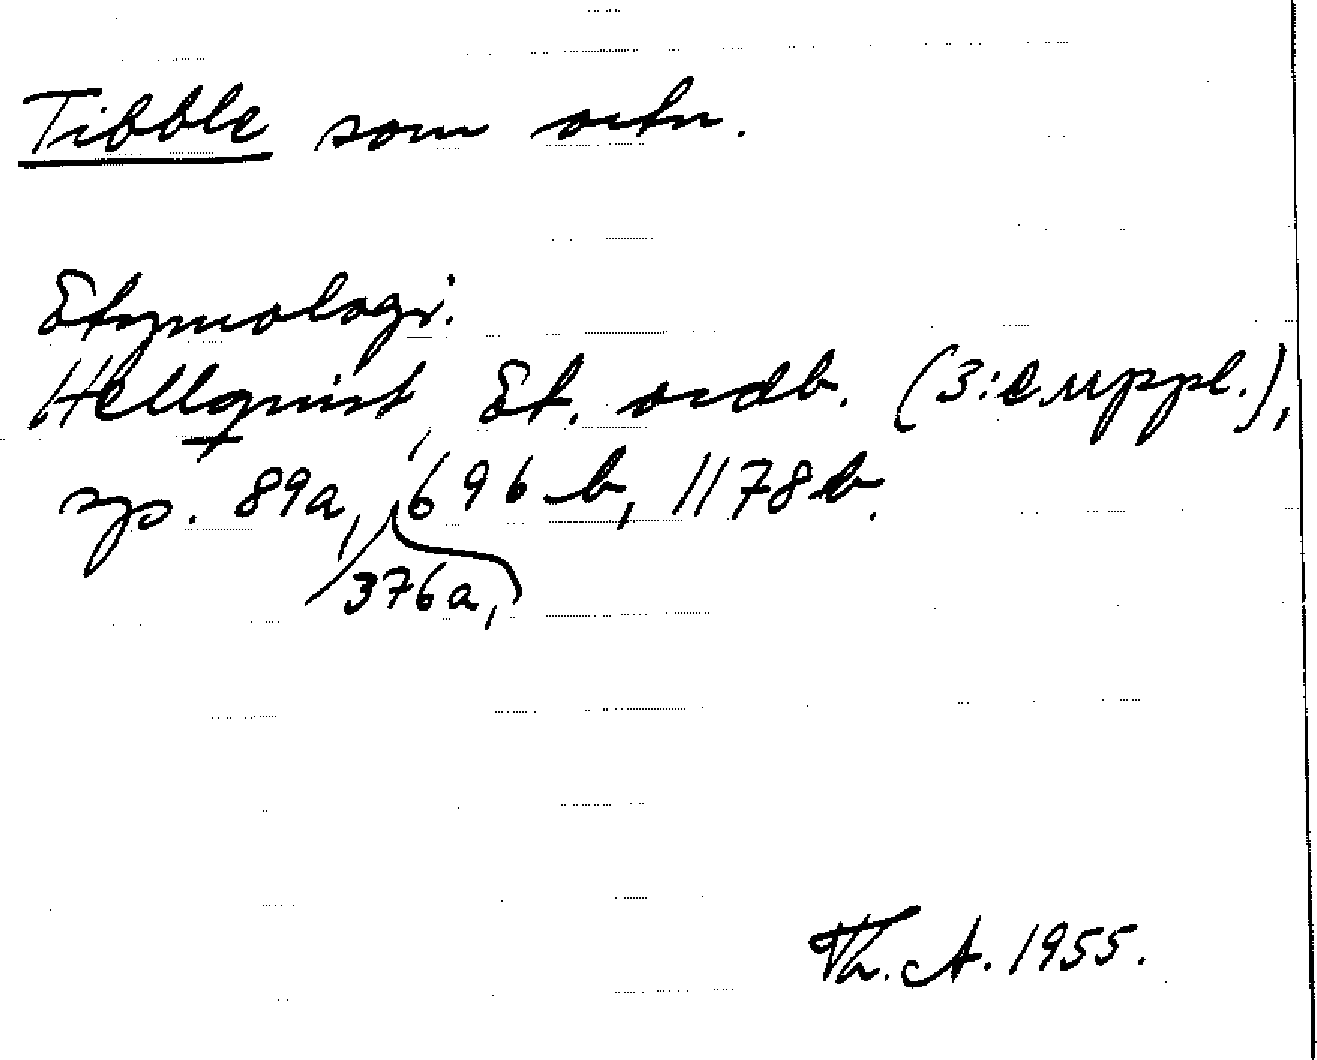 Tibble som ortn.
Etymologi.
Hellquist, Et. ordb. (3:e uppl.),
sp. 89a, 376a, 696b, 1178b.
Th. A. 1955.